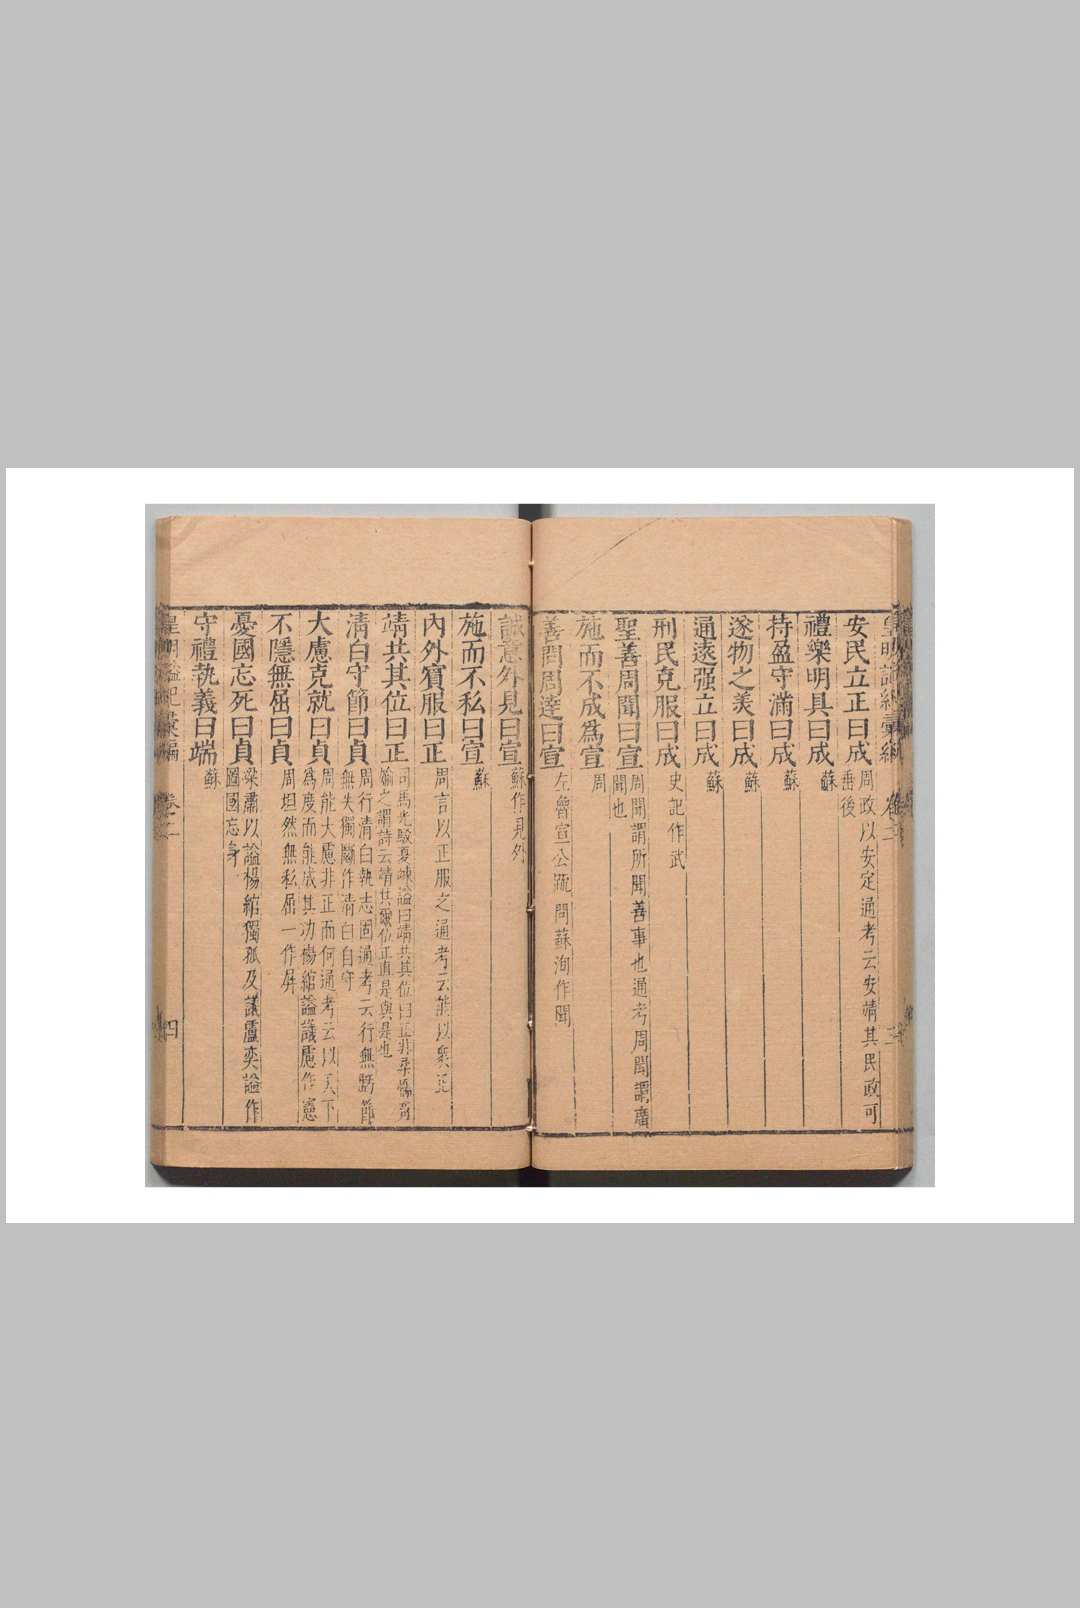 安民立正曰成 周政以安定通考云安靖其民政可垂後
禮樂明具曰成 蘇
持盈守滿曰成 蘇
遂物之美曰成 蘇
通遠强立曰成 蘇
刑民克服曰成 史記作武
聖善周聞曰宣 周聞謂所聞善事也通考周聞謂廣聞也
施而不成爲宣 周
善問周達曰宣 左魯宣公疏問蘇洵作聞
誠意外見曰宣 蘇作見外
施而不私曰宣 蘇
內外賓服曰正 周言以正服之通考云能以衆正
靖共其位曰正 司馬光駁夏竦謚曰靖共其位曰正
謂詩云靖共爾位正直是與是也
清白守節曰貞 周行清白執志固通考云行無瑕節
無失獨斷作清白自守
大慮克就曰貞 周能大慮非正而何通考云以天下
爲度而能成其功楊綰謚議慮作憲
不隱無屈曰貞 周坦然無私屈一作屏
憂國忘死曰貞 梁肅以謚楊綰獨孤及議盧奕謚作
圖國忘身
守禮執義曰端 蘇
皇明謚紀彙編 卷二 四